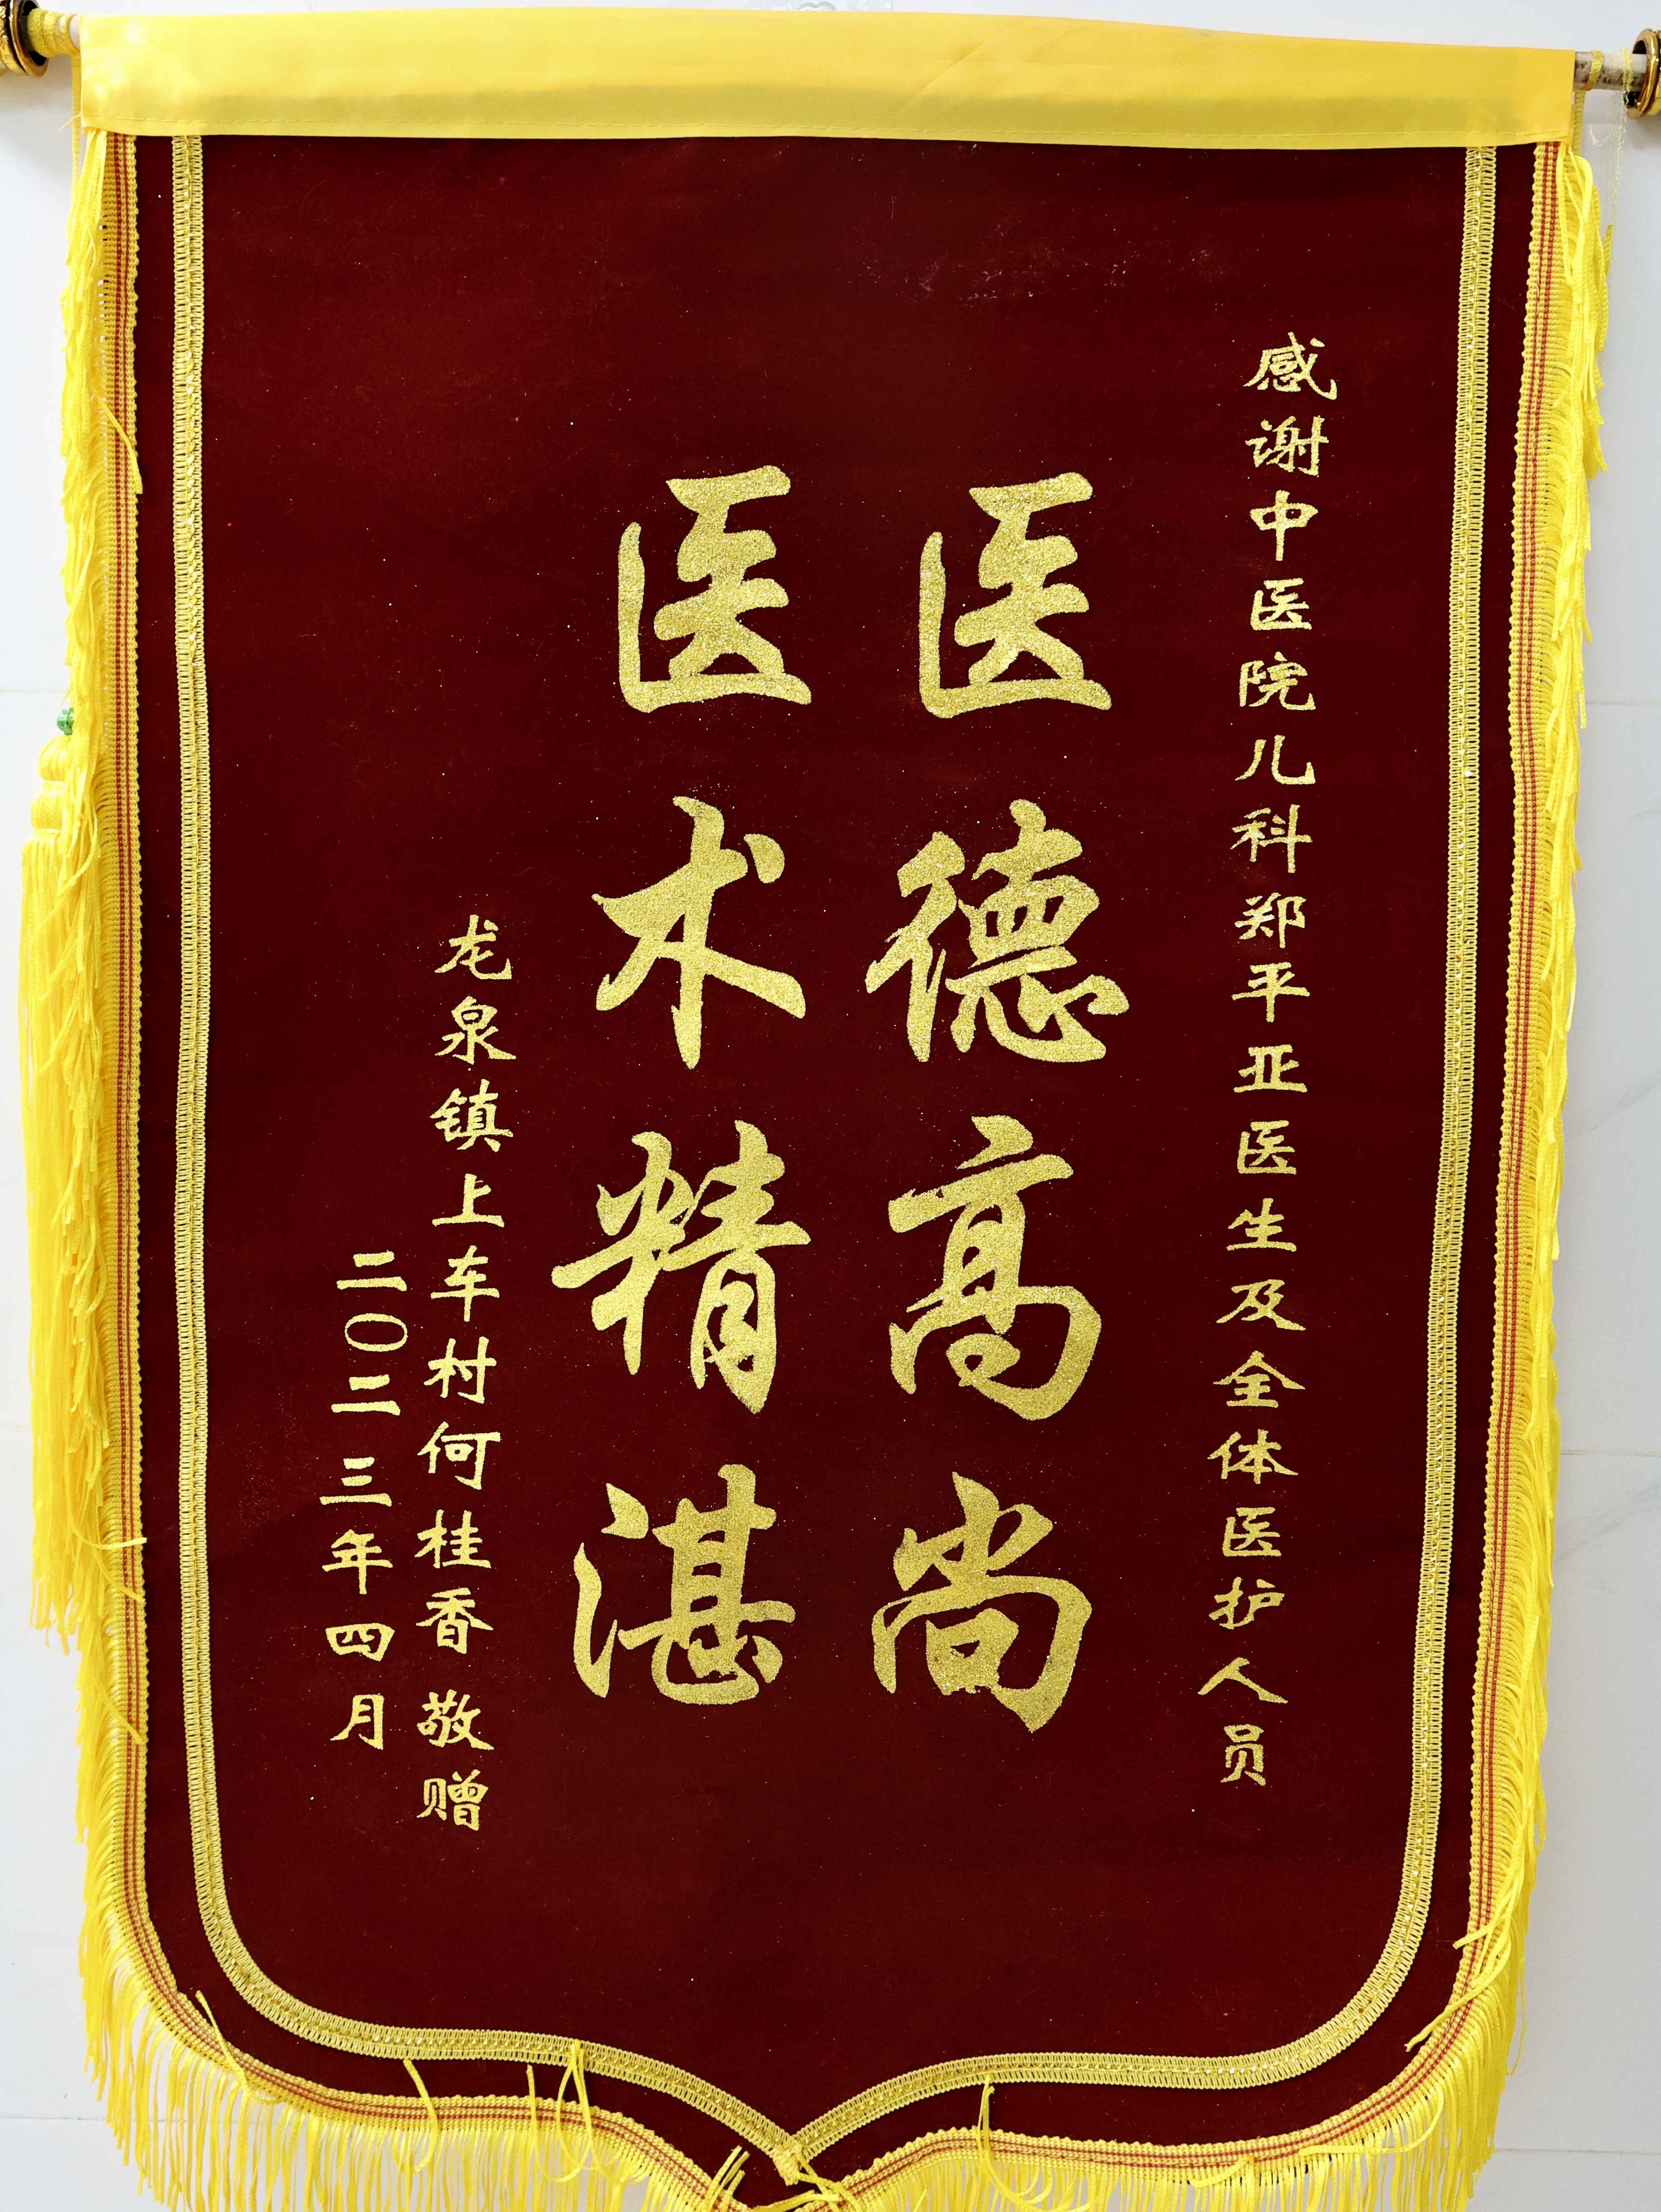 感谢中医院儿科郑平亚医生及全体医护人员
医德高尚
医术精湛
龙泉镇上车村何桂香敬赠
二〇二三年四月